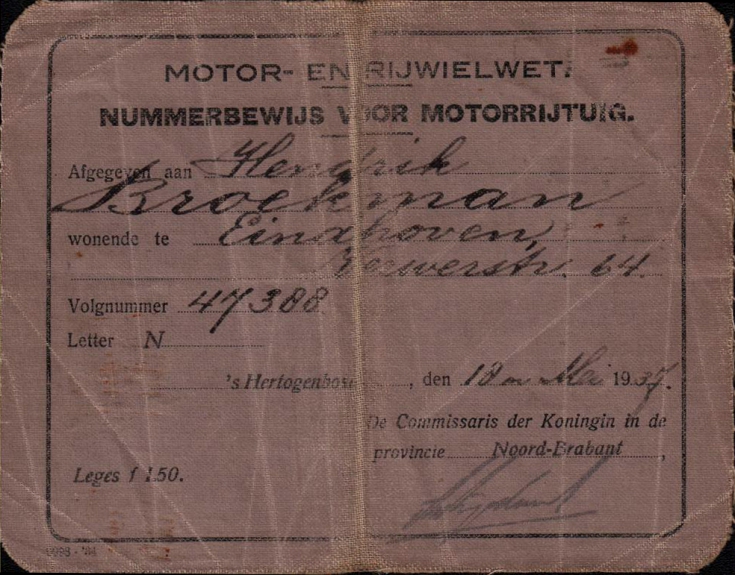 MOTOR- EN RIJWIELWET.
NUMMERBEWIJS VOOR MOTORRIJTUIG.
Afgegeven aan Hendrik
Broekman
wonende te Eindhoven,
64.
Volgnummer 47388
Letter N
's Hertogenbosch, den 18en Mei 1937.
De Commissaris der Koningin in de
provincie Noord-Brabant,
Leges f 1.50.